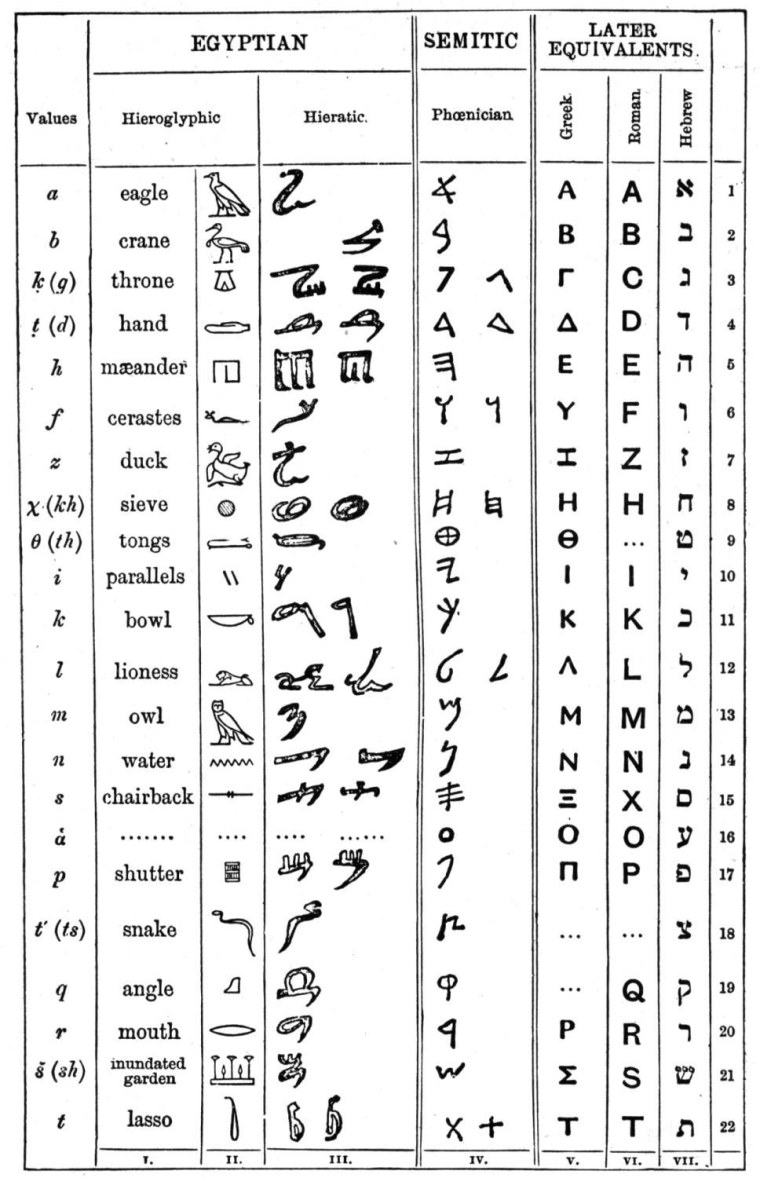 EGYPTIAN SEMITIC LATER EQUIVALENTS.
Values Hieroglyphic Hieratic. Phœnician Greek. Roman. Hebrew
a eagle A A א 1
b crane B B ב 2
ḳ (g) throne Γ C ג 3
ṭ (d) hand Δ D ד 4
h mæander E E ה 5
f cerastes Y F ו 6
z duck I Z ז 7
χ (kh) sieve H H ח 8
θ (th) tongs Θ ... ט 9
i parallels I I י 10
k bowl K K כ 11
l lioness Λ L ל 12
m owl M M מ 13
n water N N נ 14
s chairback Ξ X ס 15
ȧ ....... .... .... ...... O O ע 16
p shutter Π P פ 17
t′ (ts) snake ... ... צ 18
q angle ... Q ק 19
r mouth P R ר 20
š (sh) inundated garden Σ S ש 21
t lasso T T ת 22
I. II. III. IV. V. VI. VII.